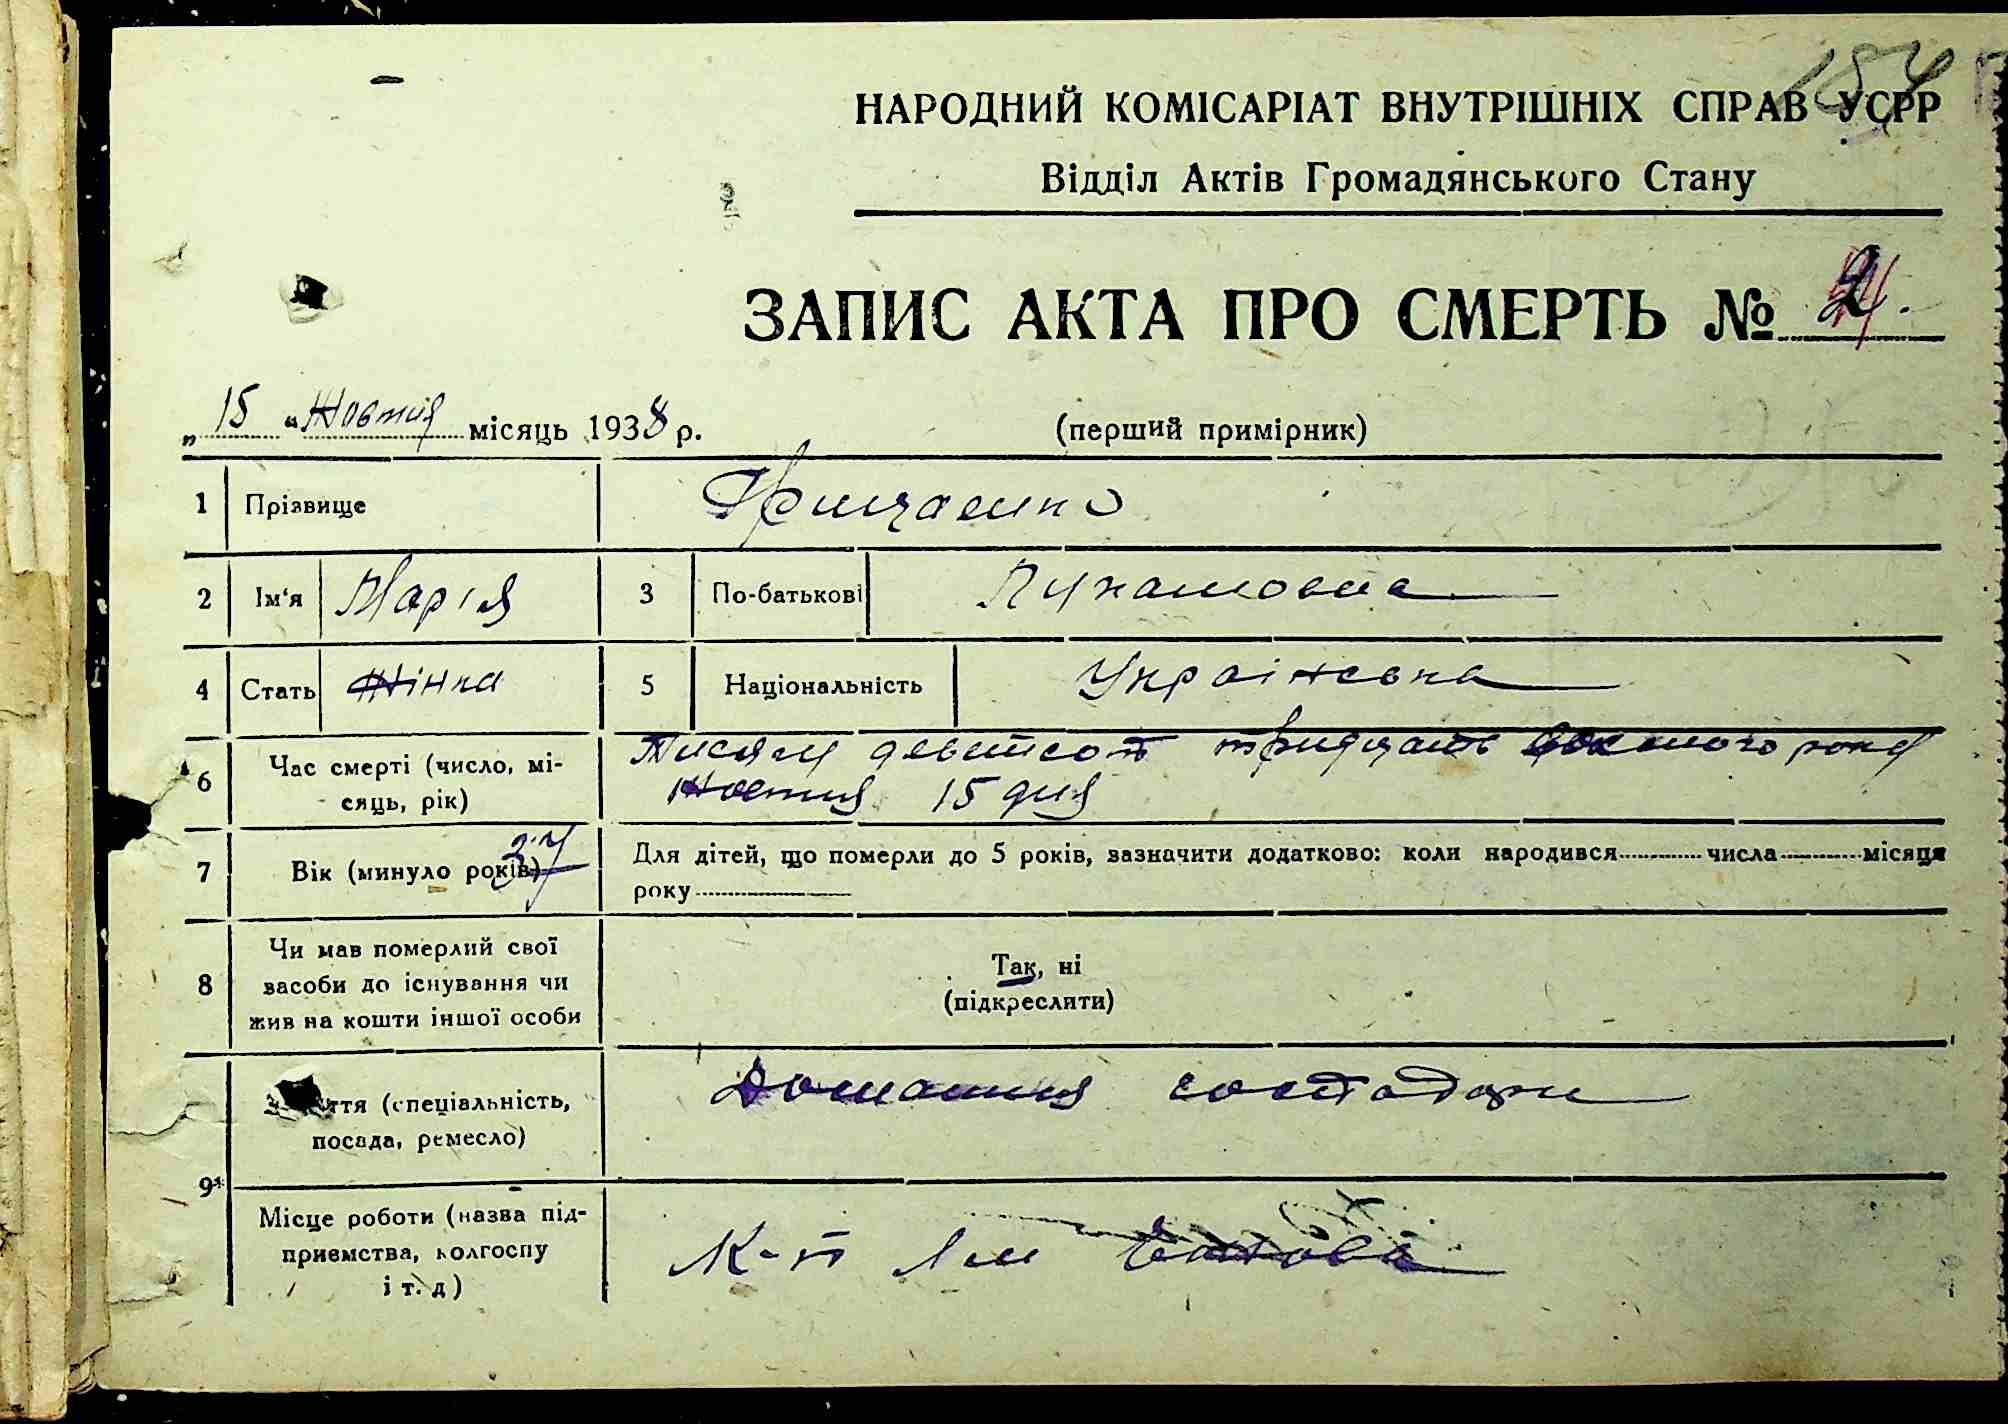 154
НАРОДНИЙ КОМІСАРІАТ ВНУТРІШНІХ СПРАВ УСРР
Відділ Актів Громадянського Стану
ЗАПИС АКТА ПРО СМЕРТЬ № 2.
„ 15 “ Жовтня місяць 1938 р. (перший примірник)
1 Прізвище Грищенко
2 Ім‘я Марія 3 По-батькові
4 Стать Жінка 5 Національність Українська
6 Час смерті (число, мі-
сяць, рік)
Тисяча девятсот тридцать року
Жовтня 15 дня
7 Вік (минуло років) 27
Для дітей, що померли до 5 років, зазначити додатково: коли народився числа місяця
року
8 Чи мав померлий свої
засоби до існування чи
жив на кошти іншої особи
Так, ні
(підкреслити)
9 ття (спеціальність,
посада, ремесло)
Домашня
Місце роботи (назва під-
приємства, колгоспу
і т. д)
К-п Ім